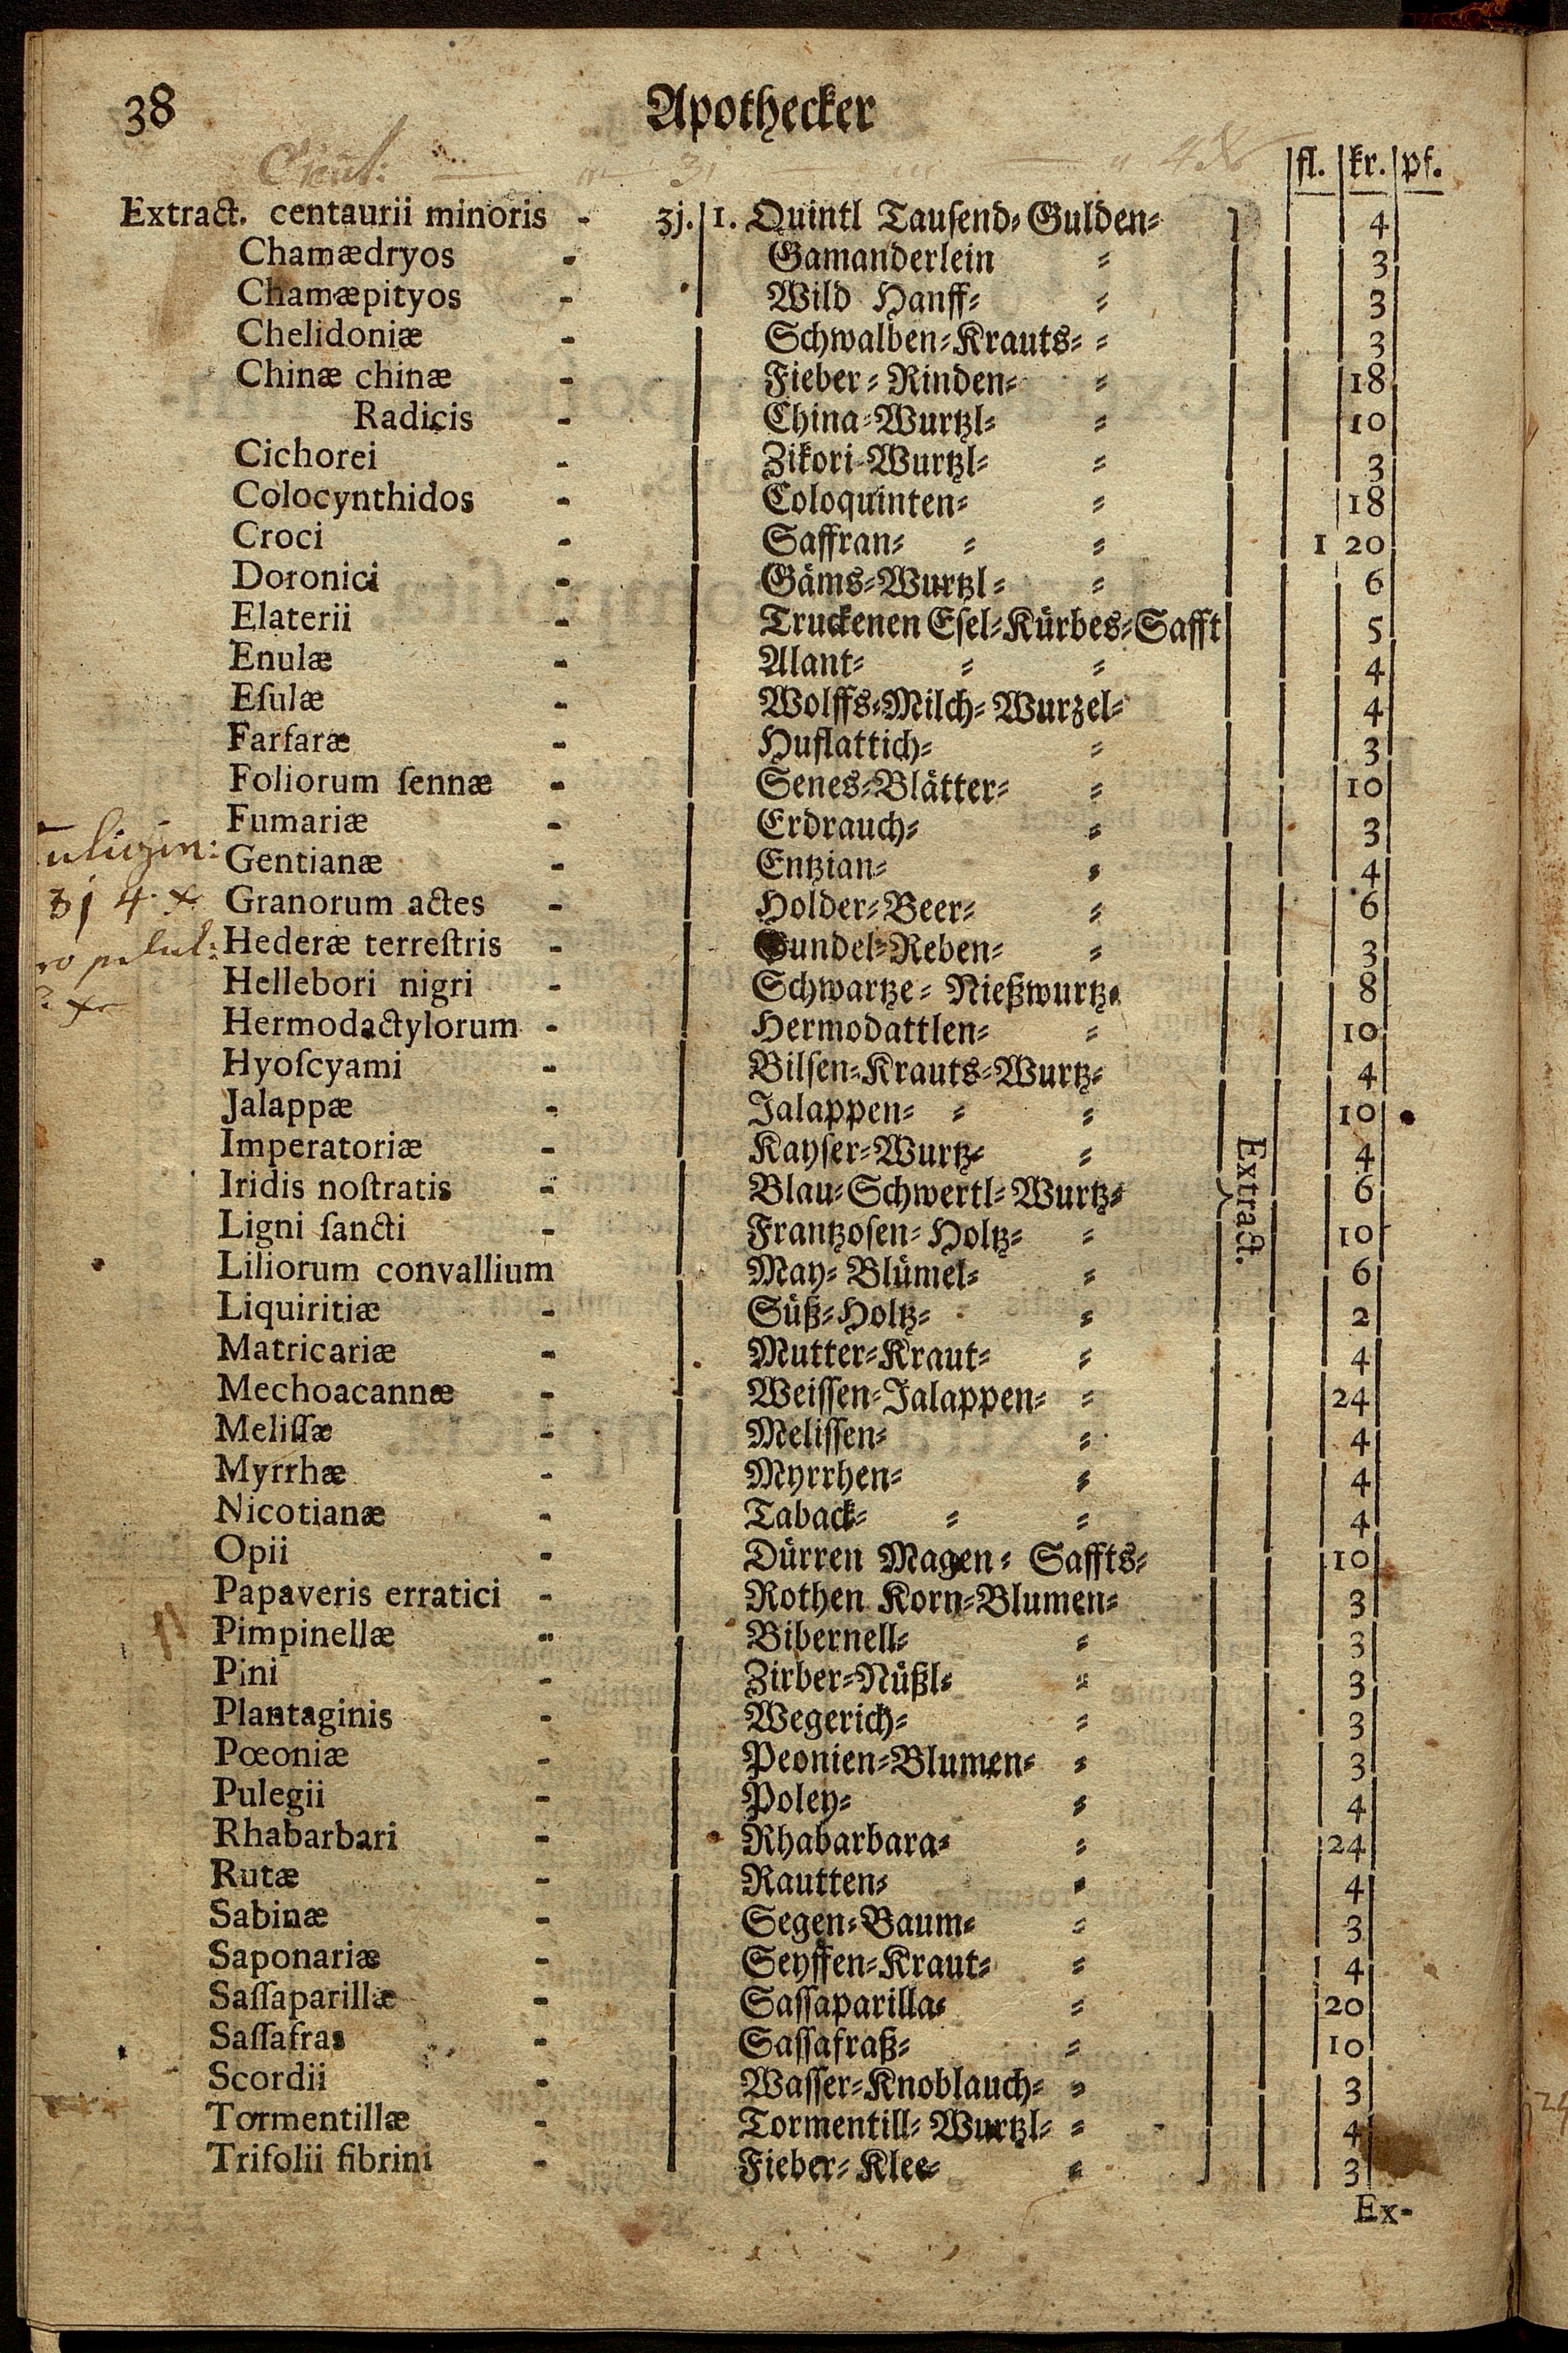 38 Apothecker
fl. kr. pf.
Extract. centaurii minoris - ʒj. 1. Quintl Tausend⸗Gulden⸗ 4
Chamædryos - Gamanderlein ⸗ 3
Chamæpityos - Wild Hanff⸗ ⸗ 3
Chelidoniæ - Schwalben⸗Krauts⸗ ⸗ 3
Chinæ chinæ - Fieber⸗Rinden⸗ ⸗ 18
Radicis - China⸗Wurtzl⸗ ⸗ 10
Cichorei - Zikori⸗Wurtzl⸗ ⸗ 3
Colocynthidos - Coloquinten⸗ ⸗ 18
Croci - Saffran⸗ ⸗ ⸗ 1 20
Doronici - Gäms⸗Wurtzl⸗ ⸗ 6
Elaterii - Truckenen Esel⸗Kürbes⸗Safft 5
Enulæ - Alant⸗ ⸗ ⸗ 4
Eſulæ - Wolffs⸗Milch⸗Wurzel⸗ 4
Farfaræ - Huflattich⸗ ⸗ 3
Foliorum ſennæ - Senes⸗Blätter⸗ ⸗ 10
Fumariæ - Erdrauch⸗ ⸗ 3
Gentianæ - Entzian⸗ ⸗ 4
ʒj 4 Granorum actes - Holder⸗Beer⸗ ⸗ 6
Hederæ terreſtris - Gundel⸗Reben⸗ ⸗ 3
Hellebori nigri - Schwartze⸗ Nießwurtz⸗ 8
Hermodactylorum - Hermodattlen⸗ ⸗ 10
Hyoſcyami - Bilsen⸗Krauts⸗Wurtz⸗ 4
Jalappæ - Jalappen⸗ ⸗ ⸗ 10
Imperatoriæ - Kayser⸗Wurtz⸗ ⸗ 4
Iridis noſtratis - Blau⸗Schwertl⸗Wurtz⸗ 6
Extract.
Ligni ſancti - Frantzosen⸗Holtz⸗ ⸗ 10
Liliorum convallium May⸗Blümel⸗ ⸗ 6
Liquiritiæ - Süß⸗Holtz⸗ ⸗ 2
Matricariæ - Mutter⸗Kraut⸗ ⸗ 4
Mechoacannæ - Weissen⸗Jalappen⸗ ⸗ 24
Meliſſæ - Melissen⸗ ⸗ 4
Myrrhæ - Myrrhen⸗ ⸗ 4
Nicotianæ - Taback⸗ ⸗ ⸗ 4
Opii - Dürren Magen⸗ Saffts⸗ 10
Papaveris erratici - Rothen Korn⸗Blumen⸗ 3
Pimpinellæ - Bibernell⸗ ⸗ 3
Pini - Zirber⸗Nüßl⸗ ⸗ 3
Plantaginis - Wegerich⸗ ⸗ 3
Pœoniæ - Peonien⸗Blumen⸗ ⸗ 3
Pulegii - Poley⸗ ⸗ 4
Rhabarbari - Rhabarbara⸗ ⸗ 24
Rutæ - Rautten⸗ ⸗ 4
Sabinæ - Segen⸗Baum⸗ ⸗ 3
Saponariæ - Seyffen⸗Kraut⸗ ⸗ 4
Saſſaparillæ - Sassaparilla⸗ ⸗ 20
Saſſafras - Sassafraß⸗ ⸗ 10
Scordii - Wasser⸗Knoblauch⸗ ⸗ 3
Tormentillæ - Tormentill⸗Wurtzl⸗ ⸗ 4
Trifolii fibrini - Fieber⸗Klee⸗ ⸗ 3
Ex-